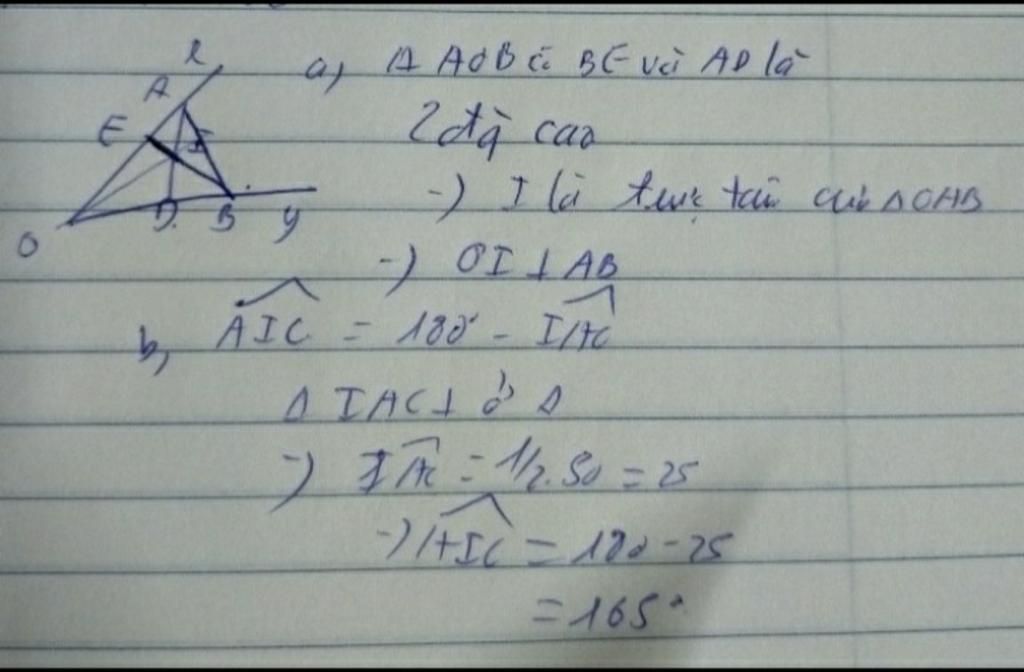 x
A
E
I
O
D
B
y
a, Δ AOB có BE và AD là
2 đg cao
-) I là trực tâm của Δ OAB
-) OI ⊥ AB
b, AIC = 180° - IAC
Δ IAC ⊥ ở Δ
-) IAC = 1/2. 50 = 25
-) AIC = 180 - 25
= 165°